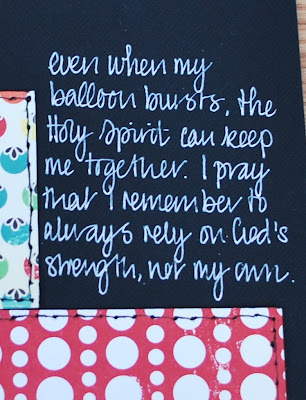 even when my
balloon bursts, the
Holy Spirit can keep
me together. I pray
that I remember to
always rely on God's
strength, not my own.